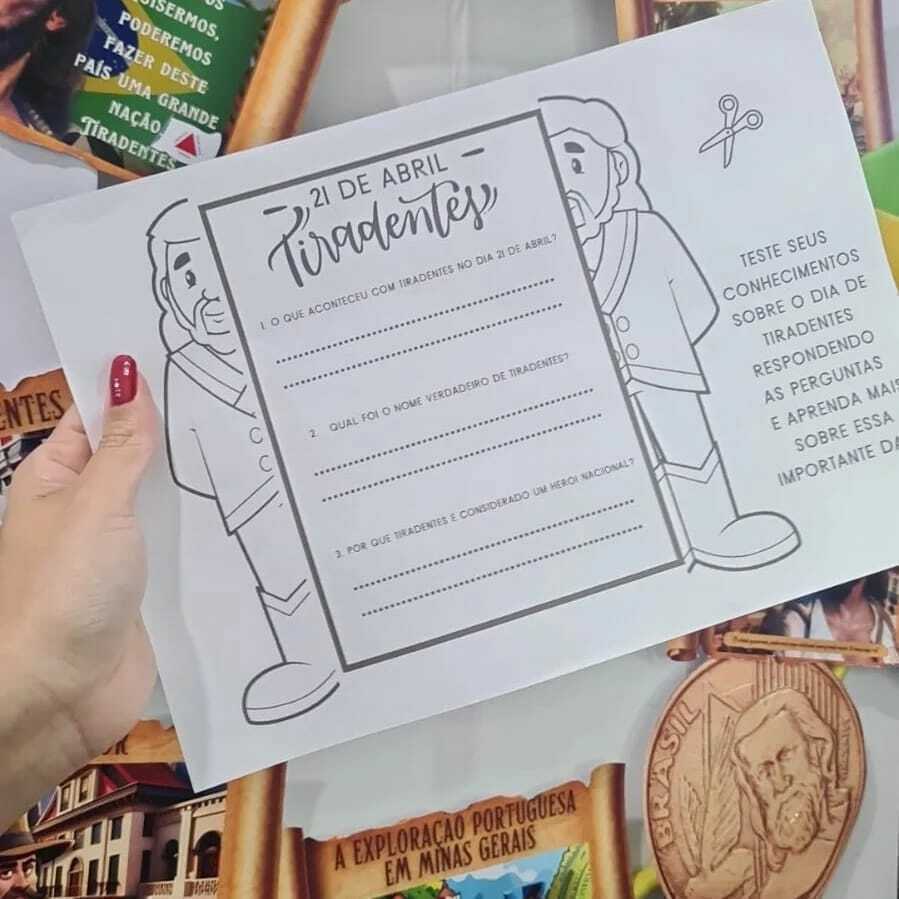 QUISERMOS,
PODEREMOS
FAZER DESTE
PAÍS UMA GRANDE
NAÇÃO
TIRADENTES
21 DE ABRIL
Tiradentes
1. O QUE ACONTECEU COM TIRADENTES NO DIA 21 DE ABRIL?
2. QUAL FOI O NOME VERDADEIRO DE TIRADENTES?
3. POR QUE TIRADENTES E CONSIDERADO UM HEROI NACIONAL?
TESTE SEUS
CONHECIMENTOS
SOBRE O DIA DE
TIRADENTES
RESPONDENDO
AS PERGUNTAS
E APRENDA MAIS
SOBRE ESSA
IMPORTANTE DA
ENTES
A EXPLORAÇÃO PORTUGUESA
EM MINAS GERAIS
BRASIL